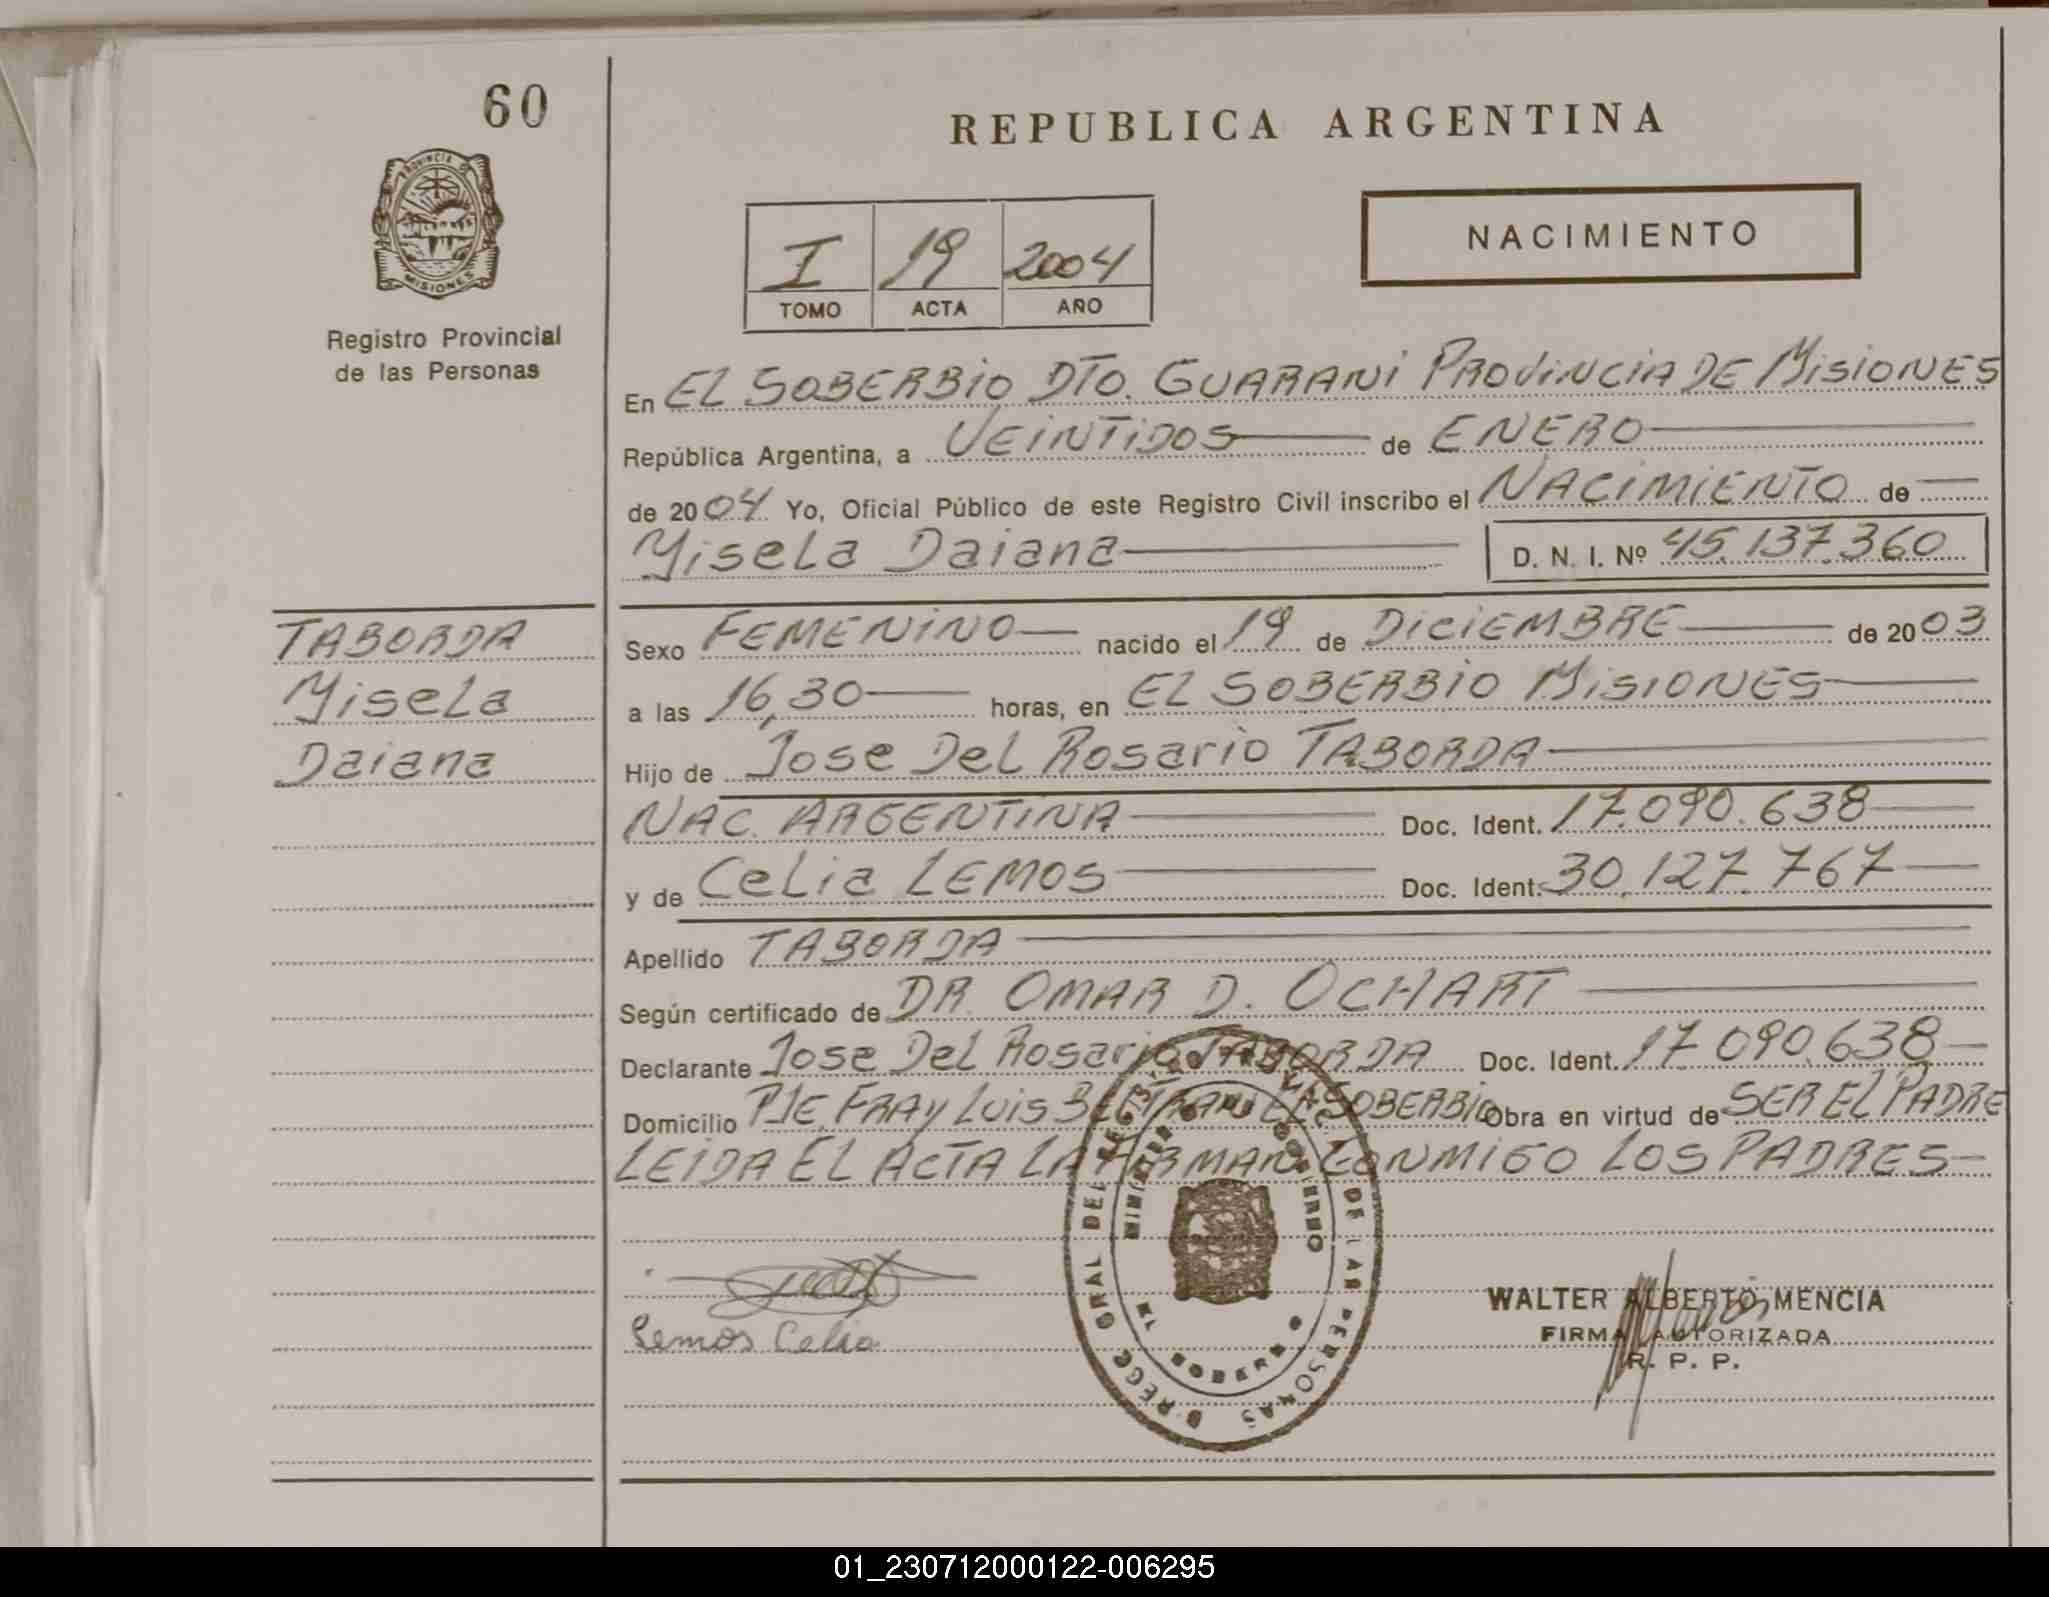 60
REPUBLICA ARGENTINA
PROVINCIA DE
MISIONES
Registro Provincial
de las Personas
I 19 2004
TOMO ACTA AÑO
NACIMIENTO
En EL SOBERBIO DTO. GUARANI PROVINCIA DE MISIONES
República Argentina, a VEINTIDOS de ENERO
de 2004 Yo, Oficial Público de este Registro Civil inscribo el NACIMIENTO de
Yisela Daiana D. N. I. Nº 45.137.360
TABORDA
Yisela
Daiana
Sexo FEMENINO nacido el 19 de DICIEMBRE de 2003
a las 16,30 horas, en EL SOBERBIO MISIONES
Hijo de Jose Del Rosario TABORDA
NAC. ARGENTINA Doc. Ident. 17.090.638
y de Celia LEMOS Doc. Ident. 30.127.767
Apellido TABORDA
Según certificado de DR. OMAR D. OCHART
Declarante Jose Del Rosario TABORDA Doc. Ident. 17.090.638
Domicilio PJE. FRAY LUIS BELTRAN EL SOBERBIO Obra en virtud de SER EL PADRE
LEIDA EL ACTA LA FIRMAN CONMIGO LOS PADRES
Lemos Celia
WALTER ALBERTO MENCIA
FIRMA AUTORIZADA
R. P. P.
GRAL DEL
DE LAS PERSONAS
01_230712000122-006295